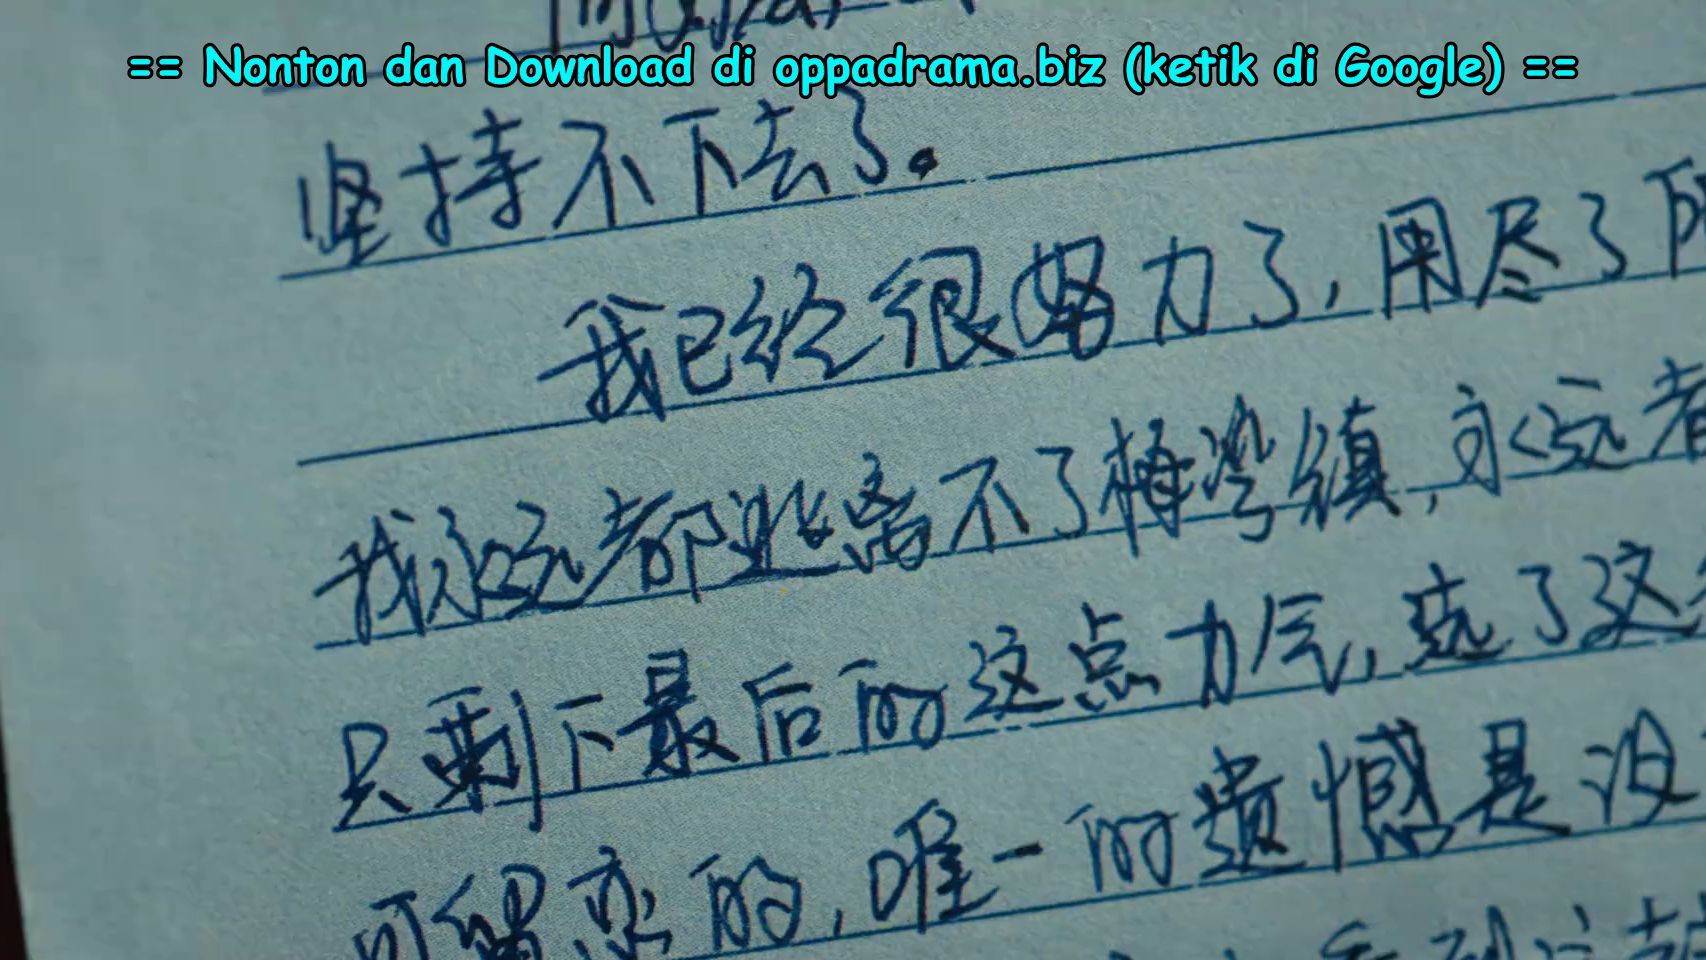 == Nonton dan Download di oppadrama.biz (ketik di Google) ==
坚持不下去了。
我已经很努力了,用尽了所
我永远都逃离不了梅湾镇,永远者
只剩下最后的这点力气,选了这
可留恋的,唯一的遗憾是没